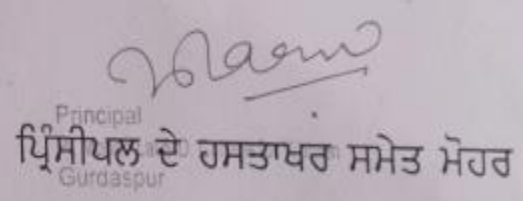 Principal
ਪ੍ਰਿੰਸੀਪਲ ਦੇ ਹਸਤਾਖਰ ਸਮੇਤ ਮੋਹਰ
Gurdaspur